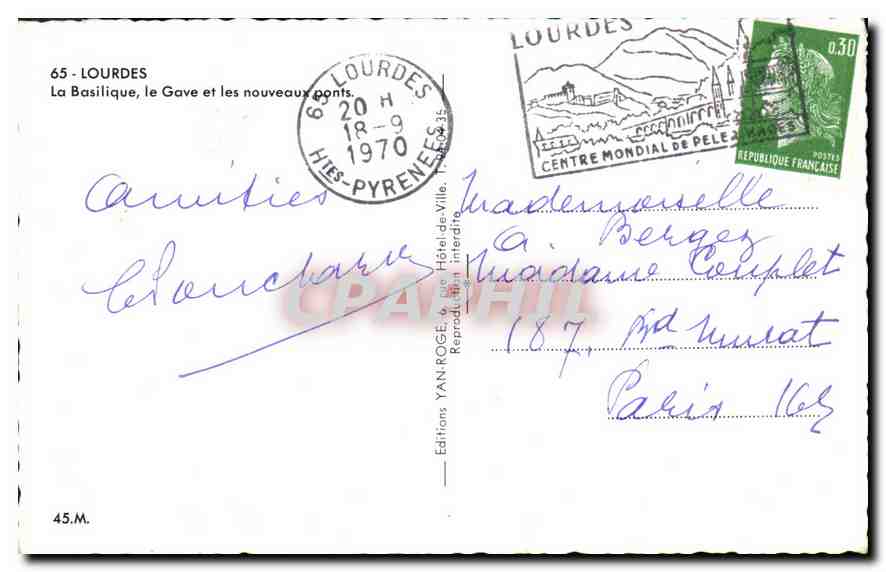 65 - LOURDES
La Basilique, le Gave et les nouveaux ponts.
65 LOURDES
20 H
18-9
1970
HTES-PYRENEES
LOURDES
CENTRE MONDIAL DE PELERINAGES
0,30
POSTES
REPUBLIQUE FRANÇAISE
Amitiés
Mademoiselle
A. Bergez
Madame Couplet
187, Bd Murat
Paris 16e
Editions YAN-ROGE, 6, rue Hôtel-de-Ville. T.
Reproduction interdite
CPAPHIL
45.M.